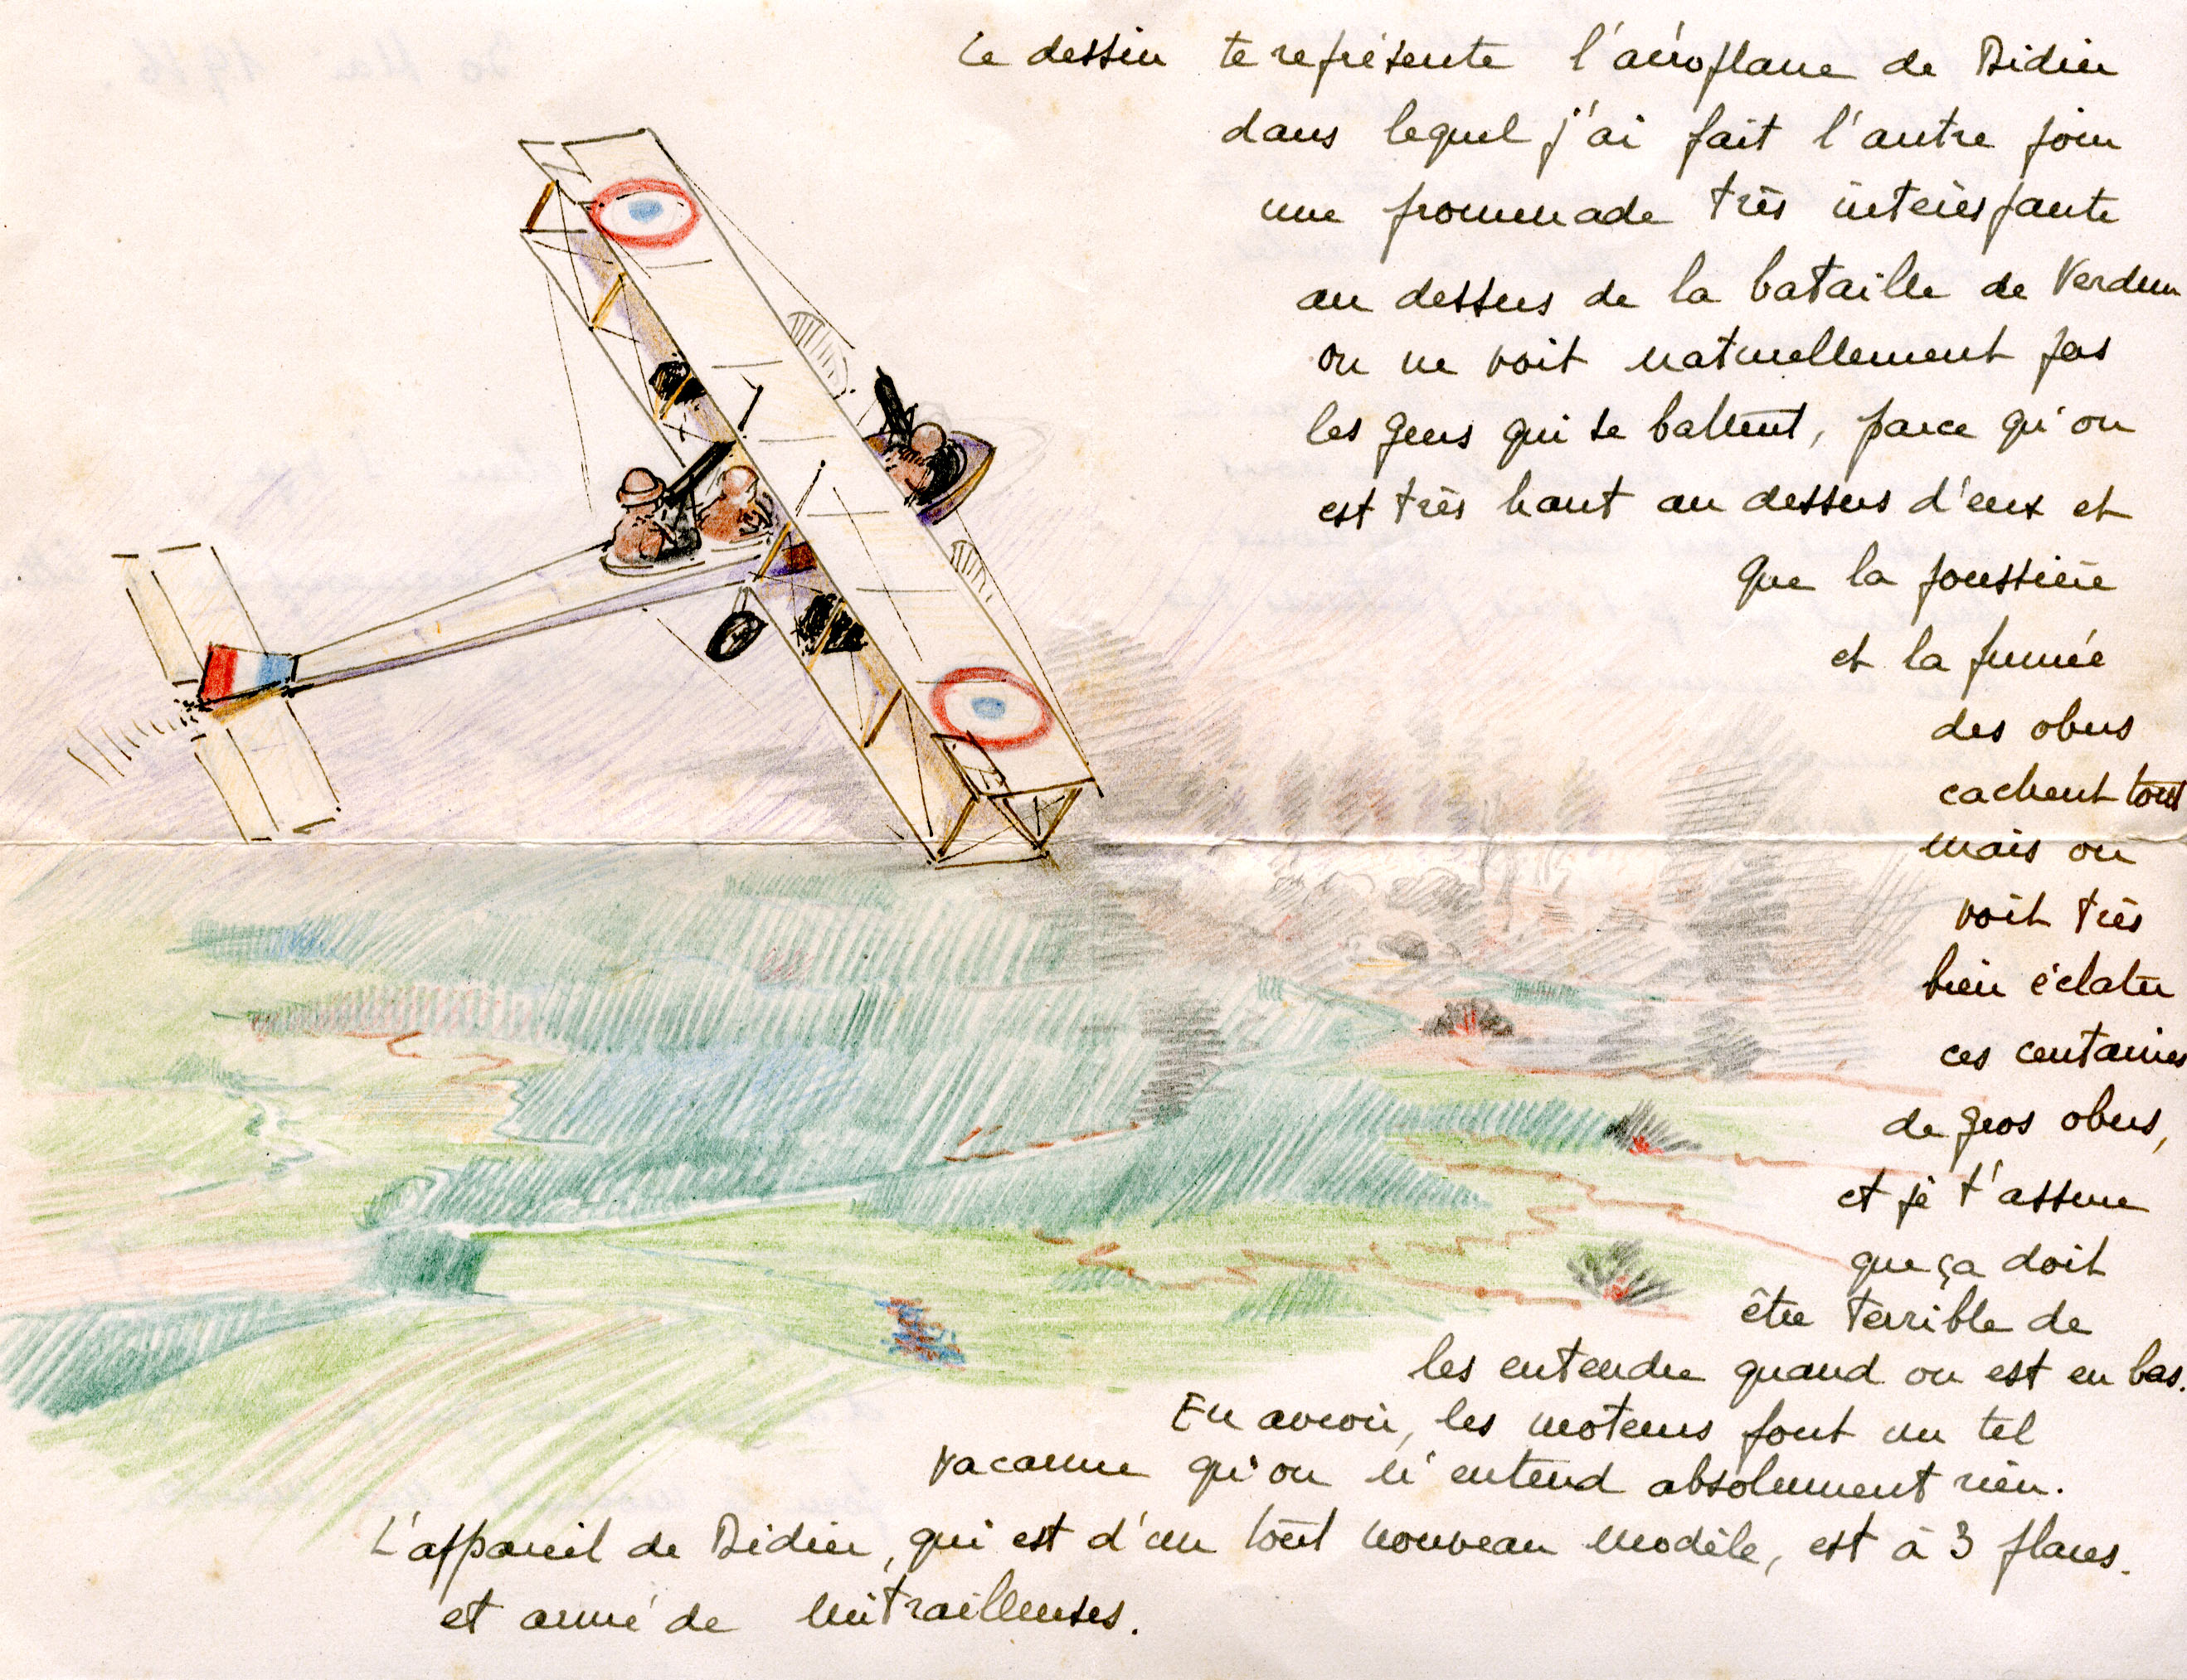 Ce dessin te représente l'aéroplane de Didier
dans lequel j'ai fait l'autre jour
une promenade très intéressante
au dessus de la bataille de Verdun
on ne voit naturellement pas
les gens qui se battent, parce qu'on
est très haut au dessus d'eux et
que la poussière
et la fumée
des obus
cachent tout
mais on
voit très
bien éclater
ces centaines
de gros obus,
et je t'assure
que ça doit
être terrible de
les entendre quand on est en bas.
En avion, les moteurs font un tel
vacarme qu'on n'entend absolument rien.
L'appareil de Didier, qui est d'un tout nouveau modèle, est à 3 places.
et armé de mitrailleuses.